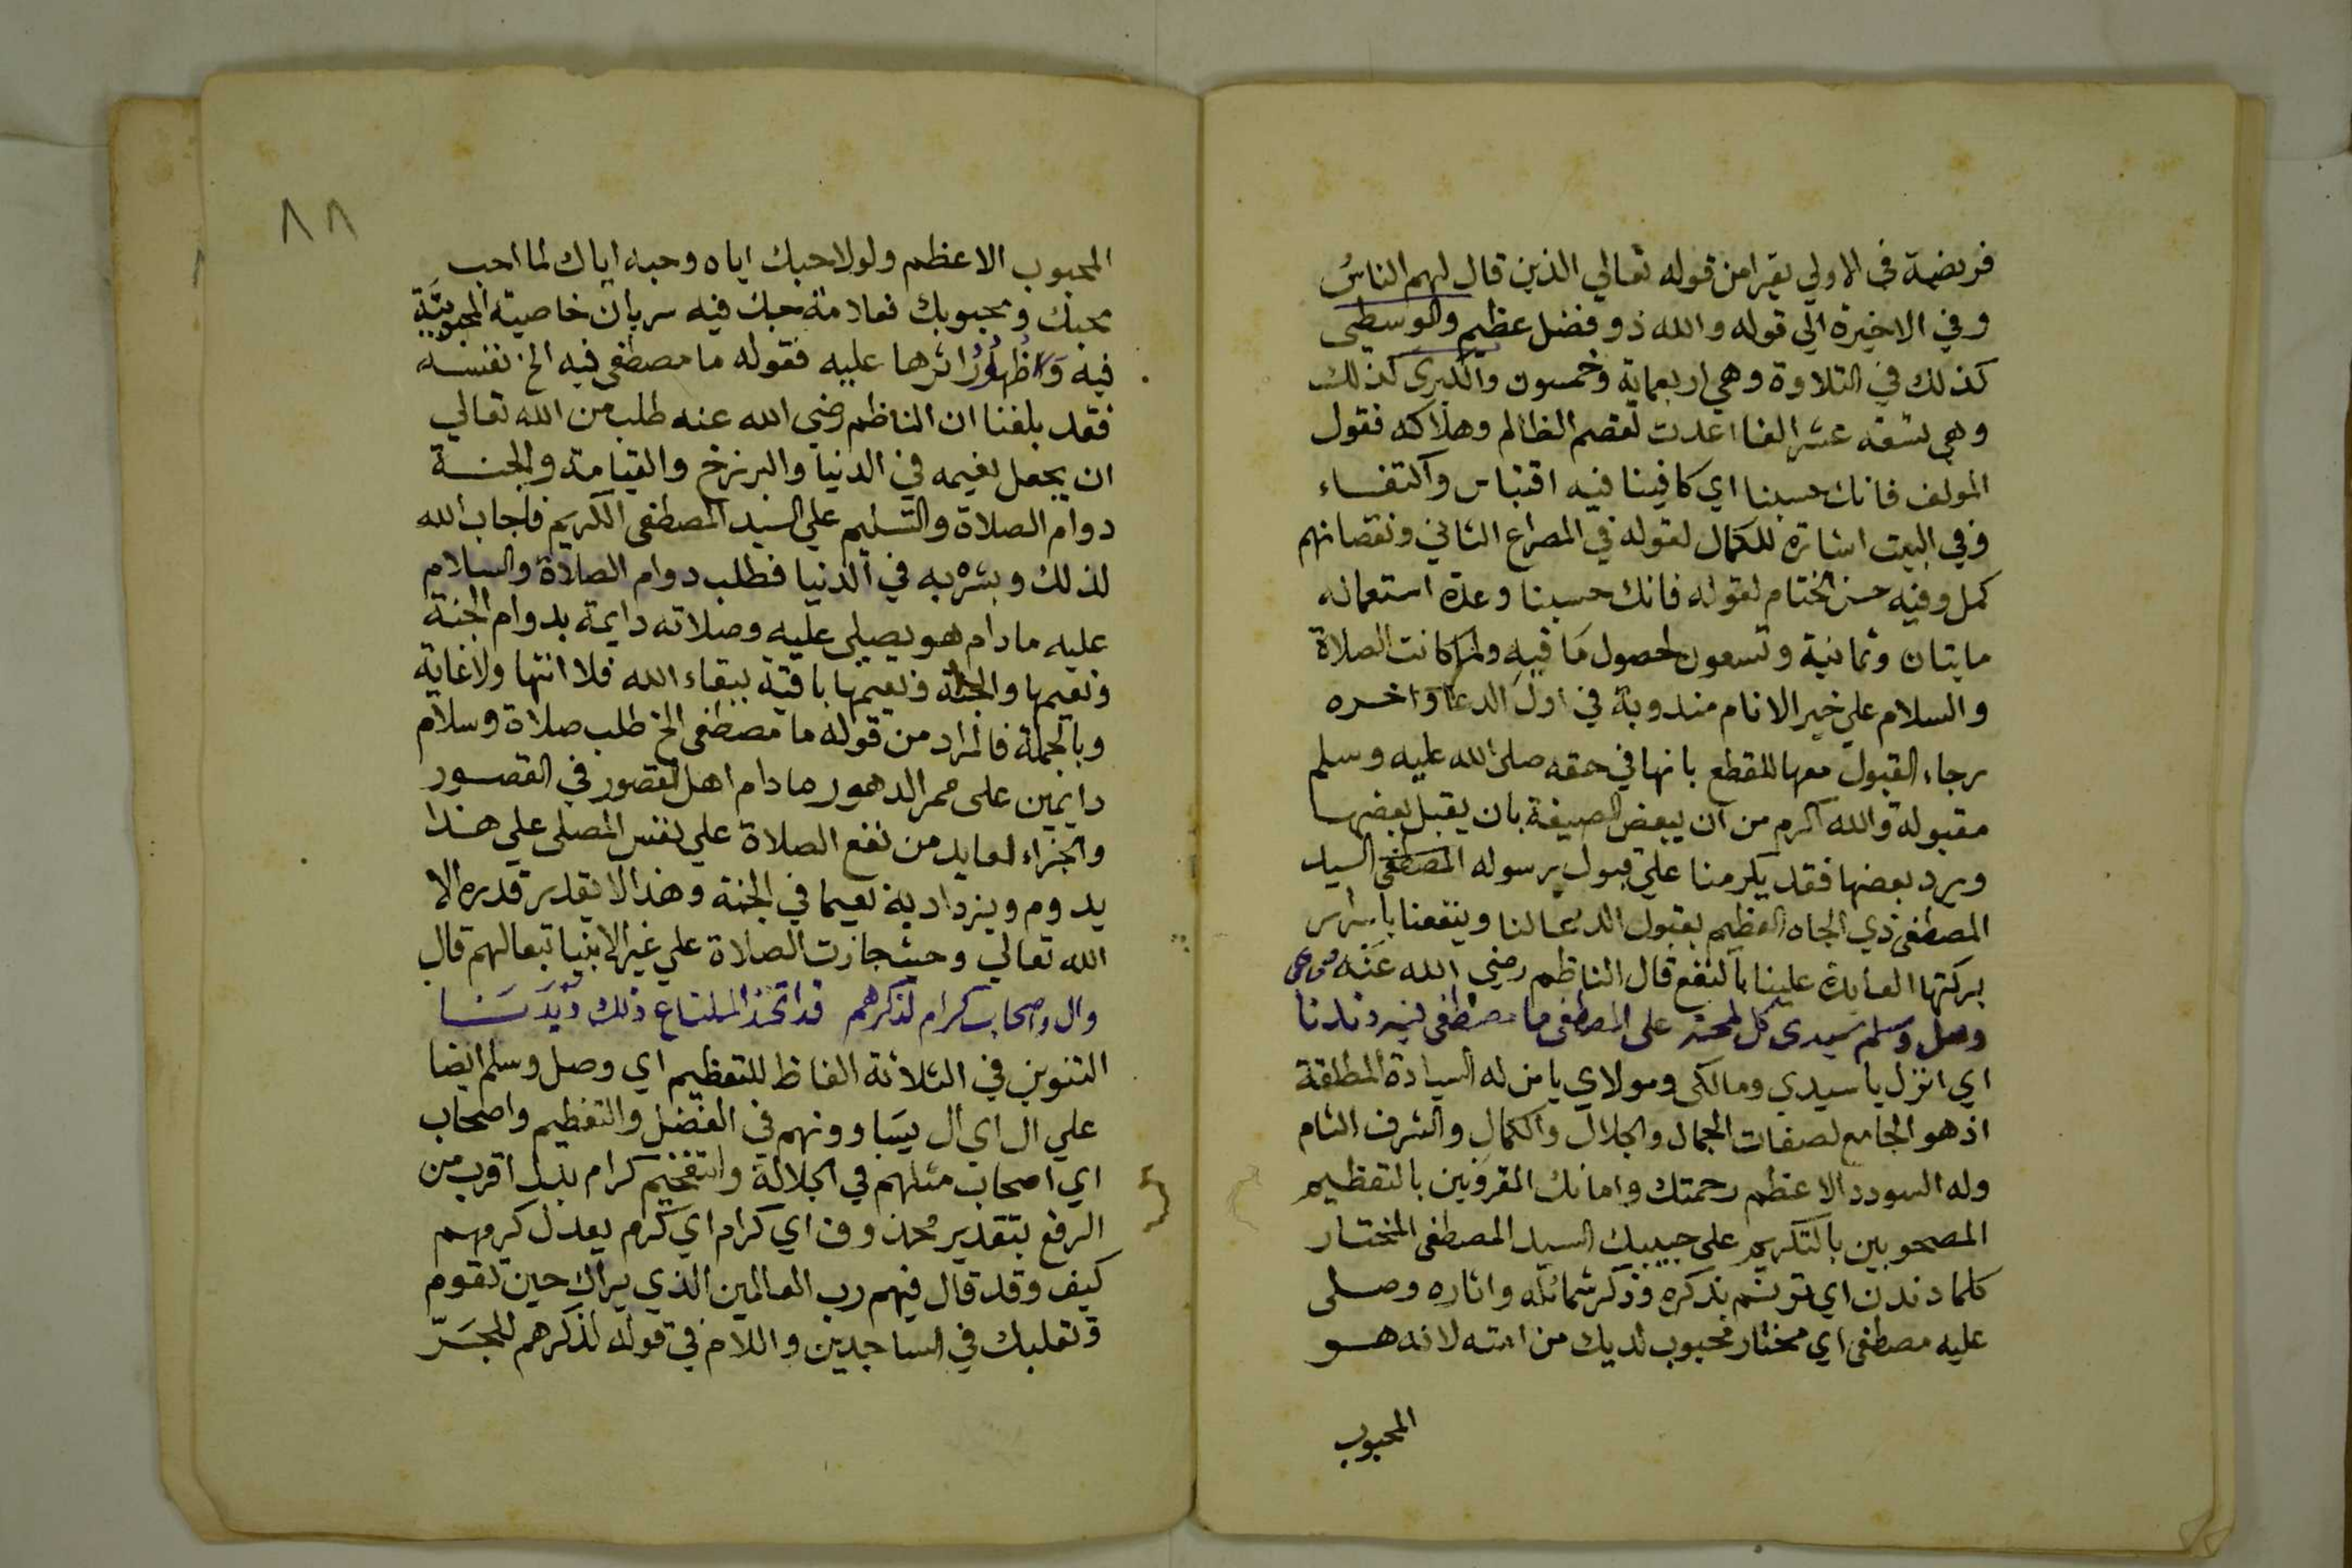 فريضة في الاولي يقرا من قوله تعالي الذين قال لهم الناسُ
وفي الاخيرة الي قوله والله ذو فضل عظيم والوسطى
كذلك في التلاوة وهي اربعماية وخمسون والكبرى كذلك
وهي تسعة عشر الفا اعدت لقصم الظالم وهلاكه فقول
المولف فانك حسبنا اي كافينا فيه اقتباس واكتفاء
وفي البيت اشارة للكمال لقوله في المصراع الثاني ونقصانهم
كمل وفيه حسن الختام لقوله فانك حسبنا وعدة استعماله
مايتان وثمانية وتسعون لحصول ما فيه ولما كانت الصلاة
والسلام علي خير الانام مندوبة في اول الدعا واخره
رجاء القبول معها للقطع بانها في حقه صلى الله عليه وسلم
مقبولة والله اكرم من ان يبعض الصيغة بان يقبل بعضها
ويرد بعضها فقد يكرمنا علي قبول رسوله المصطفى السيد
المصطفى ذي الجاه العظيم بقبول الدعا لنا وينفعنا باسرار
بركتها العايدة علينا بالنفع قال الناظم رضي الله عنه
وصل وسلم سيدى كل لمحة على المصطفى ما مصطفى فيه دندنا
اي انزل يا سيدي ومالكى ومولاي يا من له السيادة المطلقة
اذ هو الجامع لصفات الجمال والجلال والكمال والشرف التام
وله السودد الاعظم رحمتك وامانك المقرونين بالتعظيم
المصحوبين بالتكريم على حبيبك السيد المصطفى المختار
كلما دندن اي ترنم بذكره وذكر شمائله واثاره وصلى
عليه مصطفى اي مختار محبوب لديك من امته لانه هو
المحبوب
٨٨
المحبوب الاعظم ولولا حبك اياه وحبه اياك لما احب
محبك ومحبوبك فعلامة حبك فيه سريان خاصية المحبوبيّة
فيه وظهور اثرها عليه فقوله ما مصطفى فيه الخ نفسه
فقد بلغنا ان الناظم رضي الله عنه طلب من الله تعالي
ان يجعل نعيمه في الدنيا والبرزخ والقيامة والجنة
دوام الصلاة والتسليم علي السيد المصطفى الكريم فاجاب الله
لذلك وبشره به في الدنيا فطلب دوام الصلاة والسلام
عليه ما دام هو يصلي عليه وصلاته دايمة بدوام الجنة
ونعيمها والجنة ونعيمها باقية ببقاء الله فلا انتها ولا غاية
وبالجملة فالمراد من قوله ما مصطفى الخ طلب صلاة وسلام
دايمين على ممر الدهور ما دام اهل القصور في القصور
والجزاء لعايد من نفع الصلاة علي نفس المصلى علي هذا
يدوم ويزداد به نعيما في الجنة وهذا لا يقدر قدره الا
الله تعالي وحيث جازت الصلاة علي غير الانبيا تبعا لهم قال
وال واصحاب كرام لذكرهم قد اتخذ الملتاع ذلك ديدنا
التنوين في الثلاثة الفاظ للتعظيم اي وصل وسلم ايضا
علي ال اي ال يساوونهم في الفضل والتعظيم واصحاب
اي اصحاب مثلهم في الجلالة والتفخيم كرام بدل اقرب من
الرفع بتقدير محذوف اي كرام اي كرم يعدل كرمهم
كيف وقد قال فيهم رب العالمين الذي يراك حين تقوم
وتقلبك في الساجدين واللام في قوله لذكرهم للجرّ